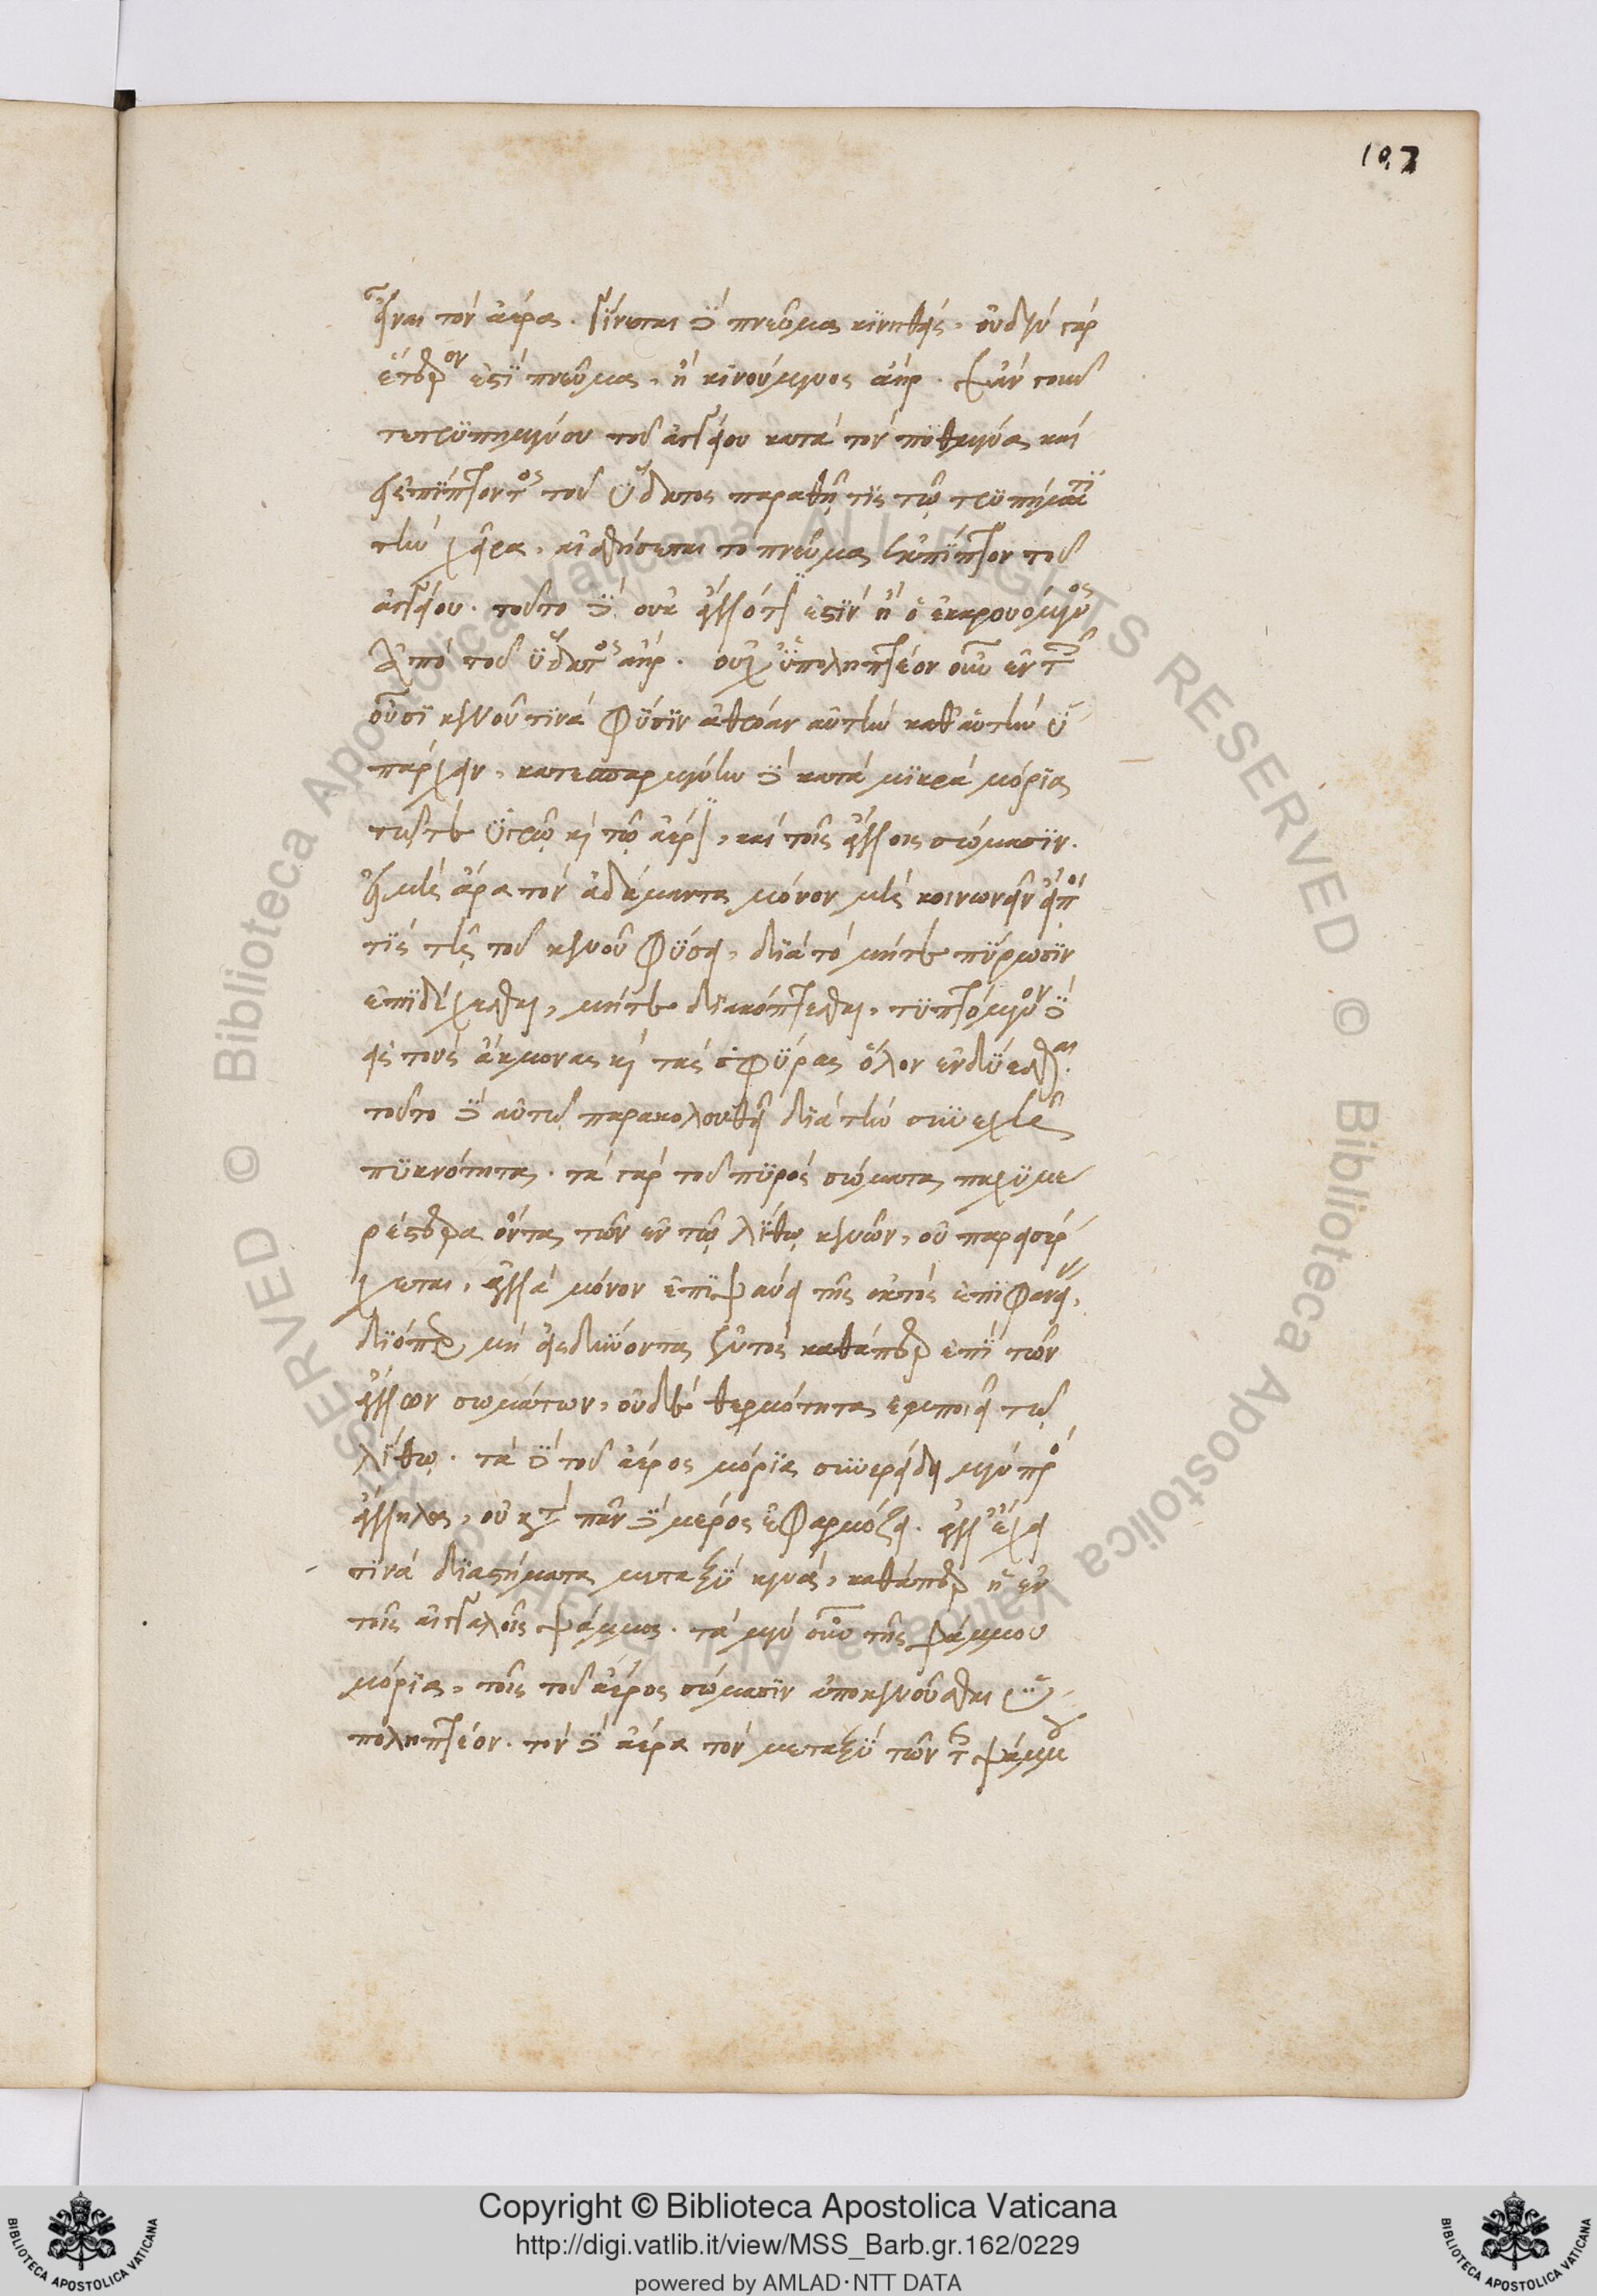 107
εἶναι τὸν ἀέρα. γίνεται δὲ πνεῦμα κινηθείς. οὐδὲν γάρ
ἕτερόν ἐστι πνεῦμα, ἢ κινούμενος ἀήρ. ἐὰν γοῦν
τετρυπημένου τοῦ ἀγγείου κατὰ τὸν πυθμένα καὶ
ἐμπίπτοντος τοῦ ὕδατος παραθῇ τις τῷ τρυπήματι
τὴν χεῖρα, αἰσθήσεται τὸ πνεῦμα ἐκπίπτον τοῦ
ἀγγείου. τοῦτο δὲ οὐκ ἄλλό τι ἐστὶν ἢ ὁ ἐκκρουόμενος
ὑπὸ τοῦ ὕδατος ἀήρ. οὐχ ὑποληπτέον οὖν ἐν τοῖς
οὖσι κενοῦ τινὰ φύσιν ἀθρόαν αὐτὴν καθ' αὑτὴν ὑ
πάρχειν, κατεσπαρμένην δὲ κατὰ μικρὰ μόρια
τῷ τε ὑγρῷ καὶ τῷ ἀέρι, καὶ τοῖς ἄλλοις σώμασιν.
εἰ μὴ ἄρα τὸν ἀδάμαντα μόνον μὴ κοινωνεῖν εἴποι
τις τῆς τοῦ κενοῦ φύσει, διὰ τὸ μήτε πύρωσιν
ἐπιδέχεσθαι, μήτε διακόπτεσθαι, τυπτόμενον δὲ
εἰς τοὺς ἄκμονας καὶ τὰς σφύρας ὅλον ἐνδύεσθαι.
τοῦτο δὲ αὐτῷ παρακολουθεῖ διὰ τὴν συνεχῆ
πυκνότητα. τὰ γὰρ τοῦ πυρὸς σώματα παχυμε
ρέστερα ὄντα τῶν ἐν τῷ λίθῳ κενῶν, οὐ παρεισέρ
χεται, ἀλλὰ μόνον ἐπιψαύει τῆς ἐκτὸς ἐπιφανείας,
διόπερ μὴ εἰσδύνοντα ἐντὸς καθάπερ ἐπὶ τῶν
ἄλλων σωμάτων, οὐδὲ θερμότητα ἐμποιεῖ τῷ
λίθῳ. τὰ δὲ τοῦ ἀέρος μόρια συνερείδει μὲν πρὸς
ἄλληλα, οὐ κατὰ πᾶν δὲ μέρος ἐφαρμόζει. ἀλλ' ἔχει
τινὰ διαστήματα μεταξὺ κενά, καθάπερ ἡ ἐν
τοῖς αἰγιαλοῖς ψάμμος. τὰ μὲν οὖν τῆς ψάμμου
μόρια, τοῖς τοῦ ἀέρος σώμασιν ἀποκενοῦσθαι ὑ
ποληπτέον. τὸν δὲ ἀέρα τὸν μεταξὺ τῶν τῆς ψάμμου
Copyright © Biblioteca Apostolica Vaticana
http://digi.vatlib.it/view/MSS_Barb.gr.162/0229
powered by AMLAD·NTT DATA